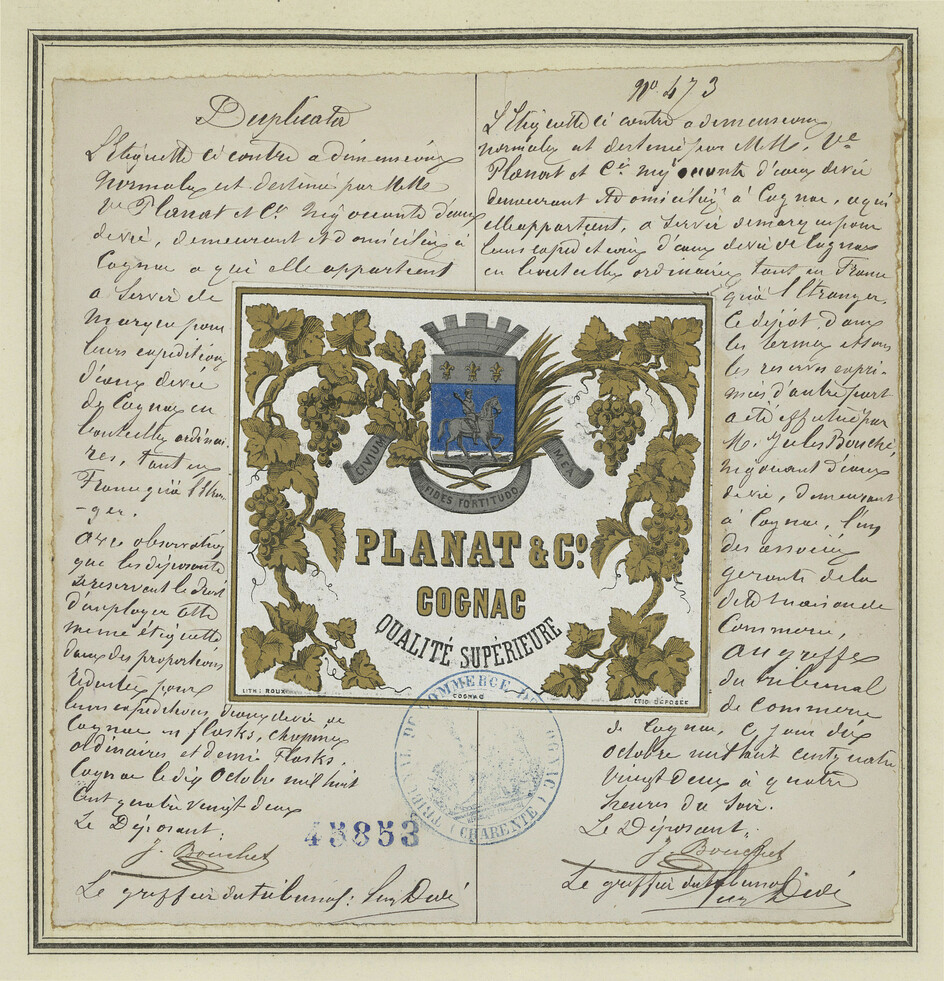 Duplicata
L'Etiquette ci contre a dimensions
normales est destinée par MMes
Vve Planat et Cie négociants d'eaux
devie, demeurant et domiciliés à
Cognac a qui elle appartient
a servir de
marque pour
leurs expéditions
d'eaux devie
de Cognac en
bouteilles ordinai
res, tant en
France qu'à l'étran
-ger.
Avec observation
que les déposants
se reservent le droit
d'employer cette
meme étiquette
dans des proportions
réduites pour
leurs expéditions d'eaux devie de
Cognac en flasks, chopines
ordinaires et demie flasks.
Cognac le dix Octobre mil huit
cent quatre vingt deux
Le Déposant:
J. Bouchet
Le greffier du tribunal:
No 473
L'Etiquette ci contre a dimensions
normales est destinée par MM. Ve
Planat et Cie négociants d'eaux devie
demeurant et domiciliés à Cognac, a qui
elle appartient, a servir de marque pour
leurs expeditions d'eaux devie de Cognac
en bouteilles ordinaires tant en France
qu'à l'étranger.
Ce dépot dans
les termes et sous
les reserves expri-
mées d'autre part
a été effectué par
M. Jules Bouchet,
négociant d'eaux
devie, demeurant
à Cognac, l'un
des associés
gerants de la
dite maison de
Commerce,
au greffe
du tribunal
de commerce
de Cognac, ce jour dix
Octobre mil huit cent quatre
vingt deux à quatre
heures du soir.
Le Déposant:
J. Bouchet
Le greffier du tribunal
CIVIUM
FIDES FORTITUDO
MEA
PLANAT & Co.
COGNAC
QUALITÉ SUPÉRIEURE
LITH: ROUX
COGNAC
ETIQ DÉPOSÉE
TRIBUNAL DE COMMERCE DE COGNAC (CHARENTE)
45853